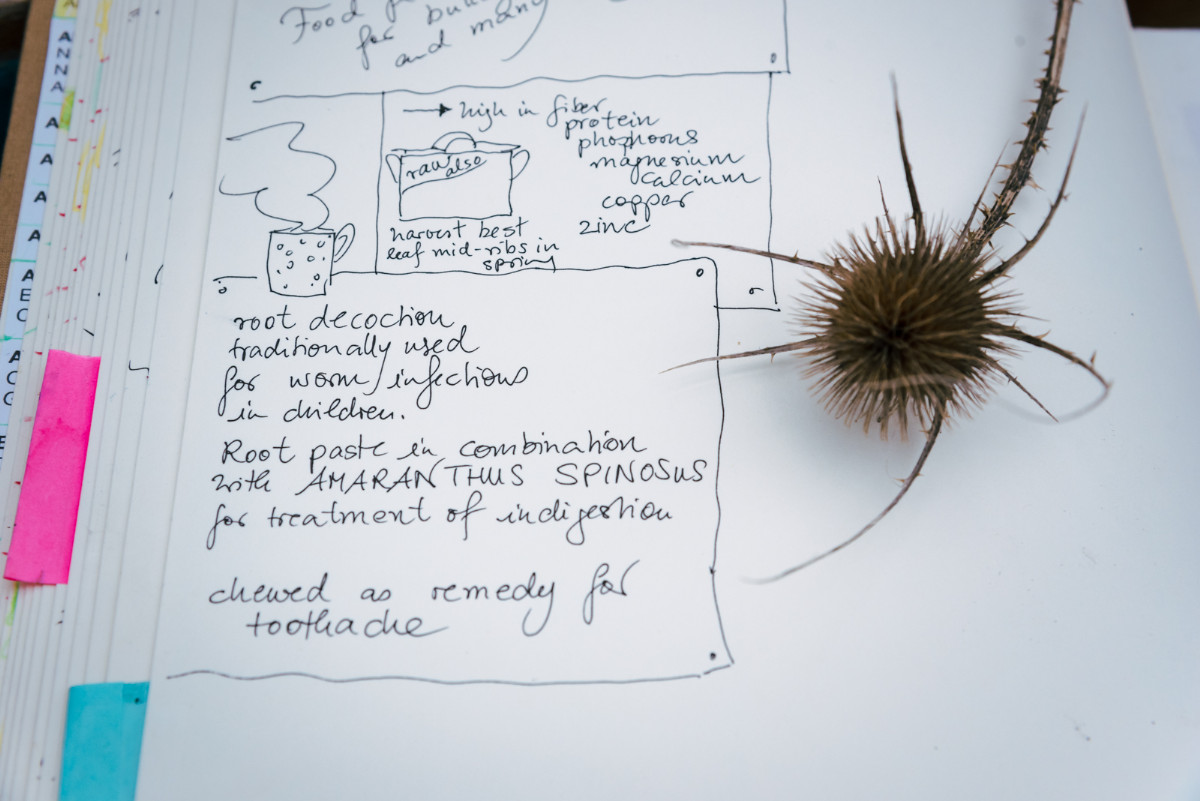 Food
for
and many
→ high in fiber
protein
phosphorus
magnesium
calcium
copper
zinc
raw also
harvest best
leaf mid-ribs in
spring
root decoction
traditionally used
for worm infections
in children.
Root paste in combination
with AMARANTHUS SPINOSUS
for treatment of indigestion
chewed as remedy for
toothache
A
N
N
A
A
A
A
A
A
E
C
A
C
G
E